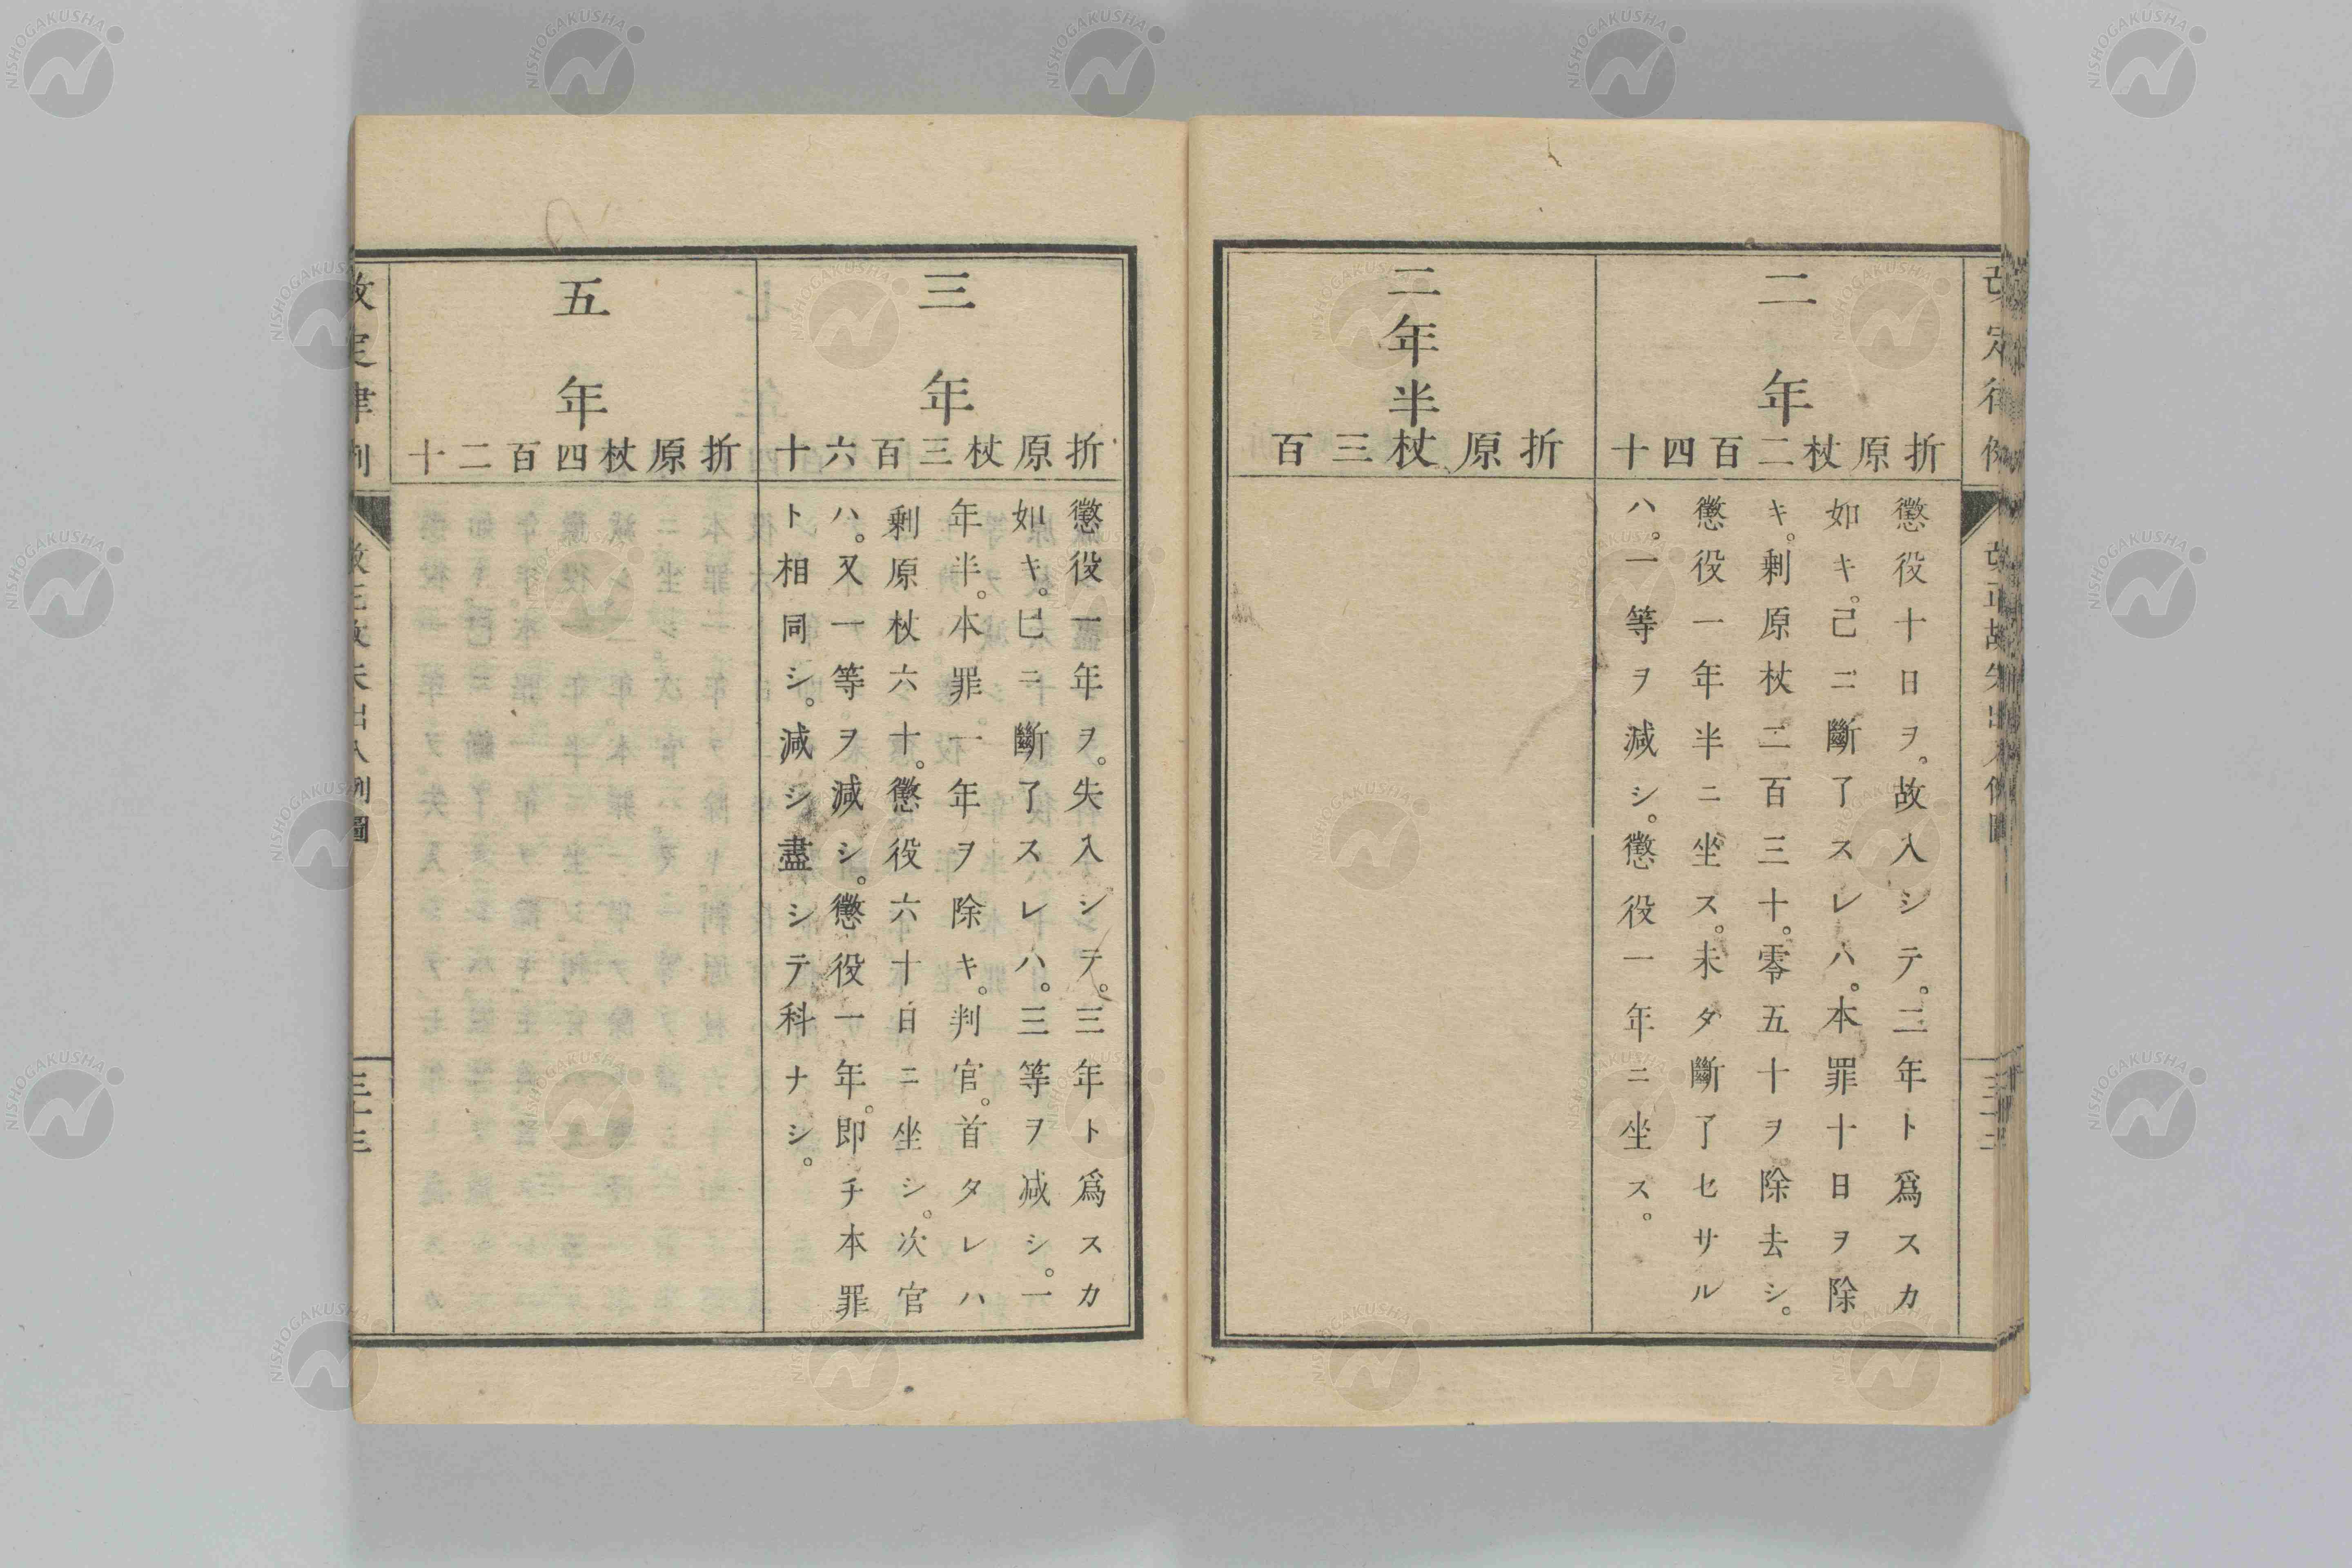 二年
折原杖二百四十
懲役十日ヲ。故入シテ。二年ト爲スカ
如キ。己ニ斷了スレハ。本罪十日ヲ除
キ。剩原杖二百三十。零五十ヲ除去シ。
懲役一年半ニ坐ス。未タ斷了セサル
ハ。一等ヲ減シ。懲役一年ニ坐ス。
二年半
折原杖三百
三年
折原杖三百六十
懲役一年ヲ。失入シテ。三年ト爲スカ
如キ。巳ニ斷了スレハ。三等ヲ减シ。一
年半。本罪一年ヲ除キ。判官。首タレハ
剩原杖六十。懲役六十日ニ坐シ。次官
ハ。又一等ヲ減シ。懲役一年。即チ本罪
ト相同シ。減シ盡シテ科ナシ。
五年
折原杖四百二十
NISHOGAKUSHA